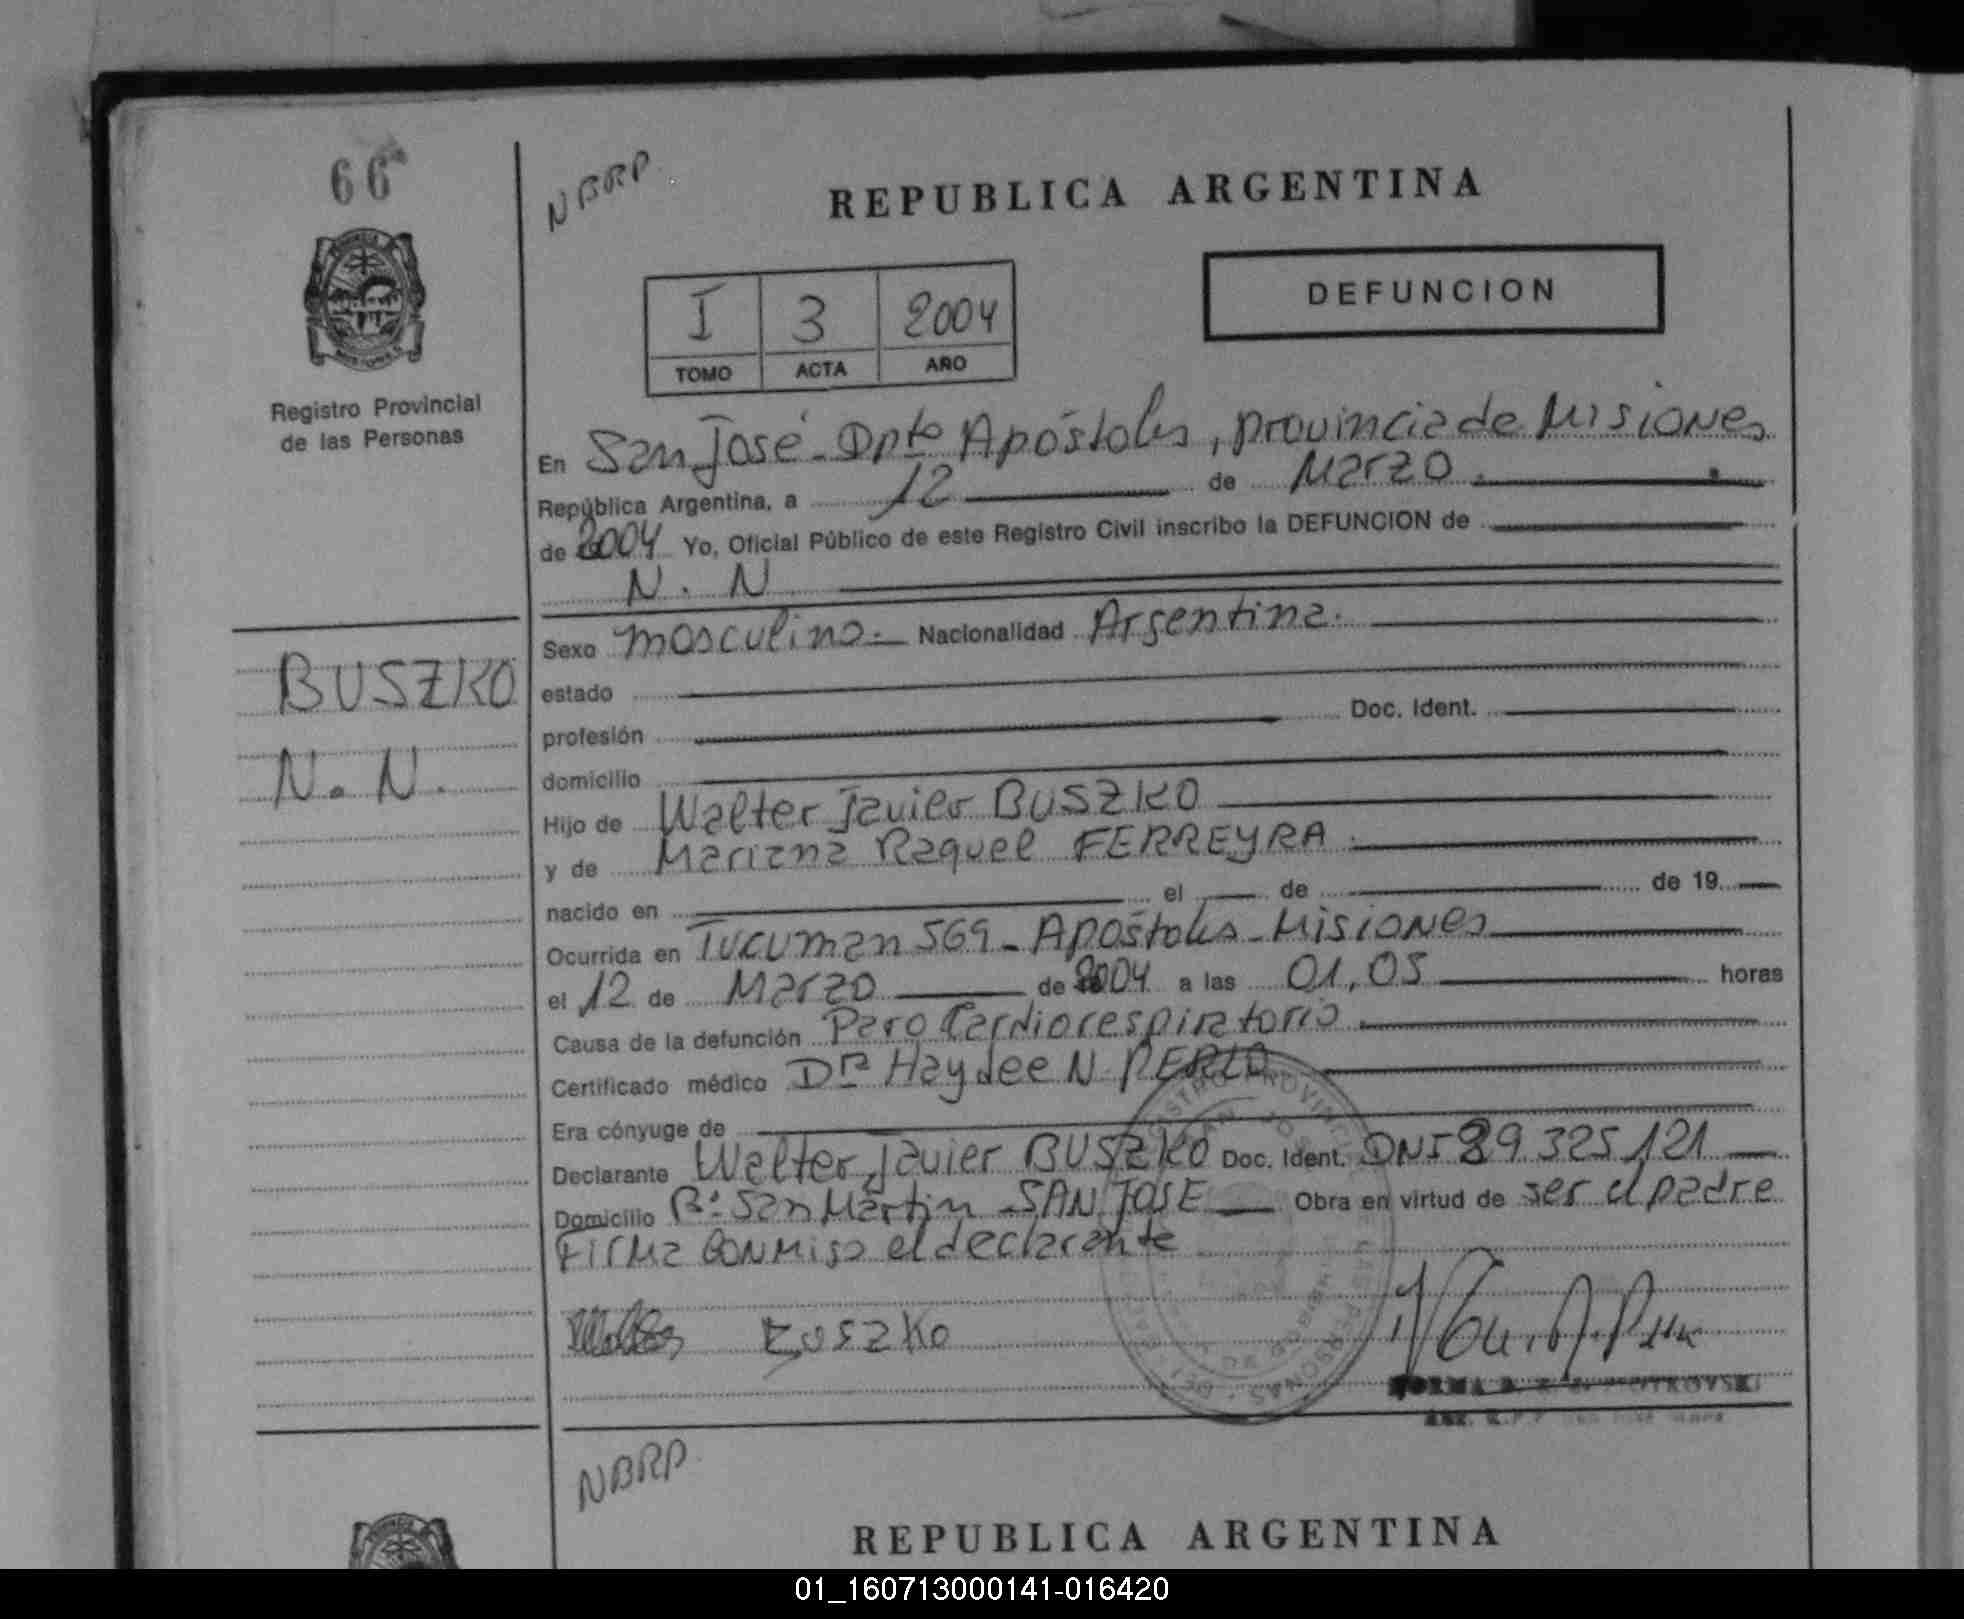 66
NBRP
REPUBLICA ARGENTINA
I 3 2004
TOMO ACTA AÑO
DEFUNCION
Registro Provincial
de las Personas
En San José - Dpto Apóstoles, provincia de Misiones
República Argentina, a 12 de Marzo.
de 2004 Yo, Oficial Público de este Registro Civil inscribo la DEFUNCION de
N. N
BUSZKO
N. N.
Sexo masculino. Nacionalidad Argentina.
estado
profesión Doc. Ident.
domicilio
Hijo de Walter Javier BUSZKO
y de Mariana Raquel FERREYRA.
nacido en el de de 19
Ocurrida en Tucuman 569 - Apóstoles - Misiones
el 12 de Marzo de 2004 a las 01,05 horas
Causa de la defunción Paro Cardiorespiratorio.
Certificado médico Dra Haydee N. PERLO
Era cónyuge de
Declarante Walter Javier BUSZKO Doc. Ident. DNI 29.325.121
Domicilio Bº San Martin - SAN JOSE Obra en virtud de ser el padre
Firma conmigo el declarante
Buszko
NBRP
REPUBLICA ARGENTINA
01_160713000141-016420